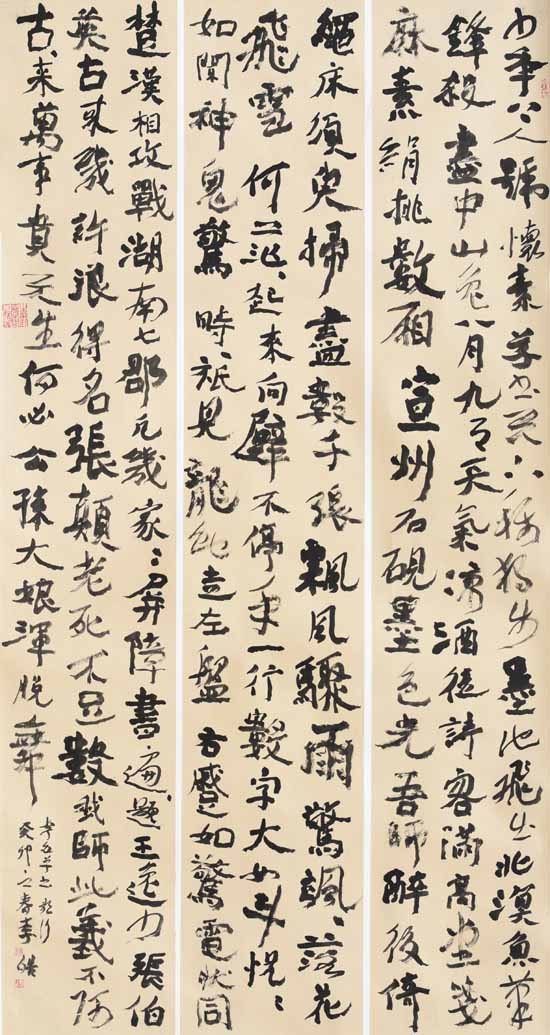 少年上人號懷素草書天下稱獨步墨池飛出北溟魚筆
鋒殺盡中山兔八月九月天氣涼酒徒詩客滿高堂箋
麻素絹排數廂宣州石硯墨色光吾師醉後倚
繩床須臾掃盡數千張飄風驟雨驚颯、落花
飛雪何茫、起來向壁不停手一行數字大如斗怳、
如聞神鬼驚時、祇見龍蛇走左盤右蹙如驚電狀同
楚漢相攻戰湖南七郡凡幾家、屏障書遍題王逸少張伯
英古來幾許浪得名張顛老死不足數我師此義不師
古、來萬事貴天生何必公孫大娘渾脫舞
李白草書歌行
癸卯之春李